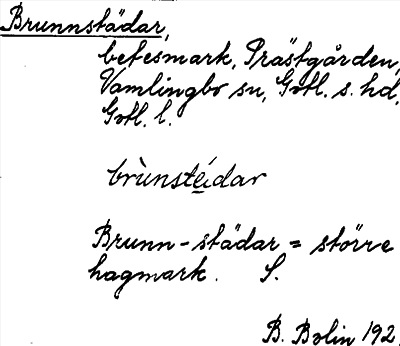 Brunnstädar,
betesmark, Prästgården,
Vamlingbo sn, Gotl. s. hd,
Gotl. l.
brùnstéidar
Brunn-städar = större
hagmark. S.
B. Bolin 192